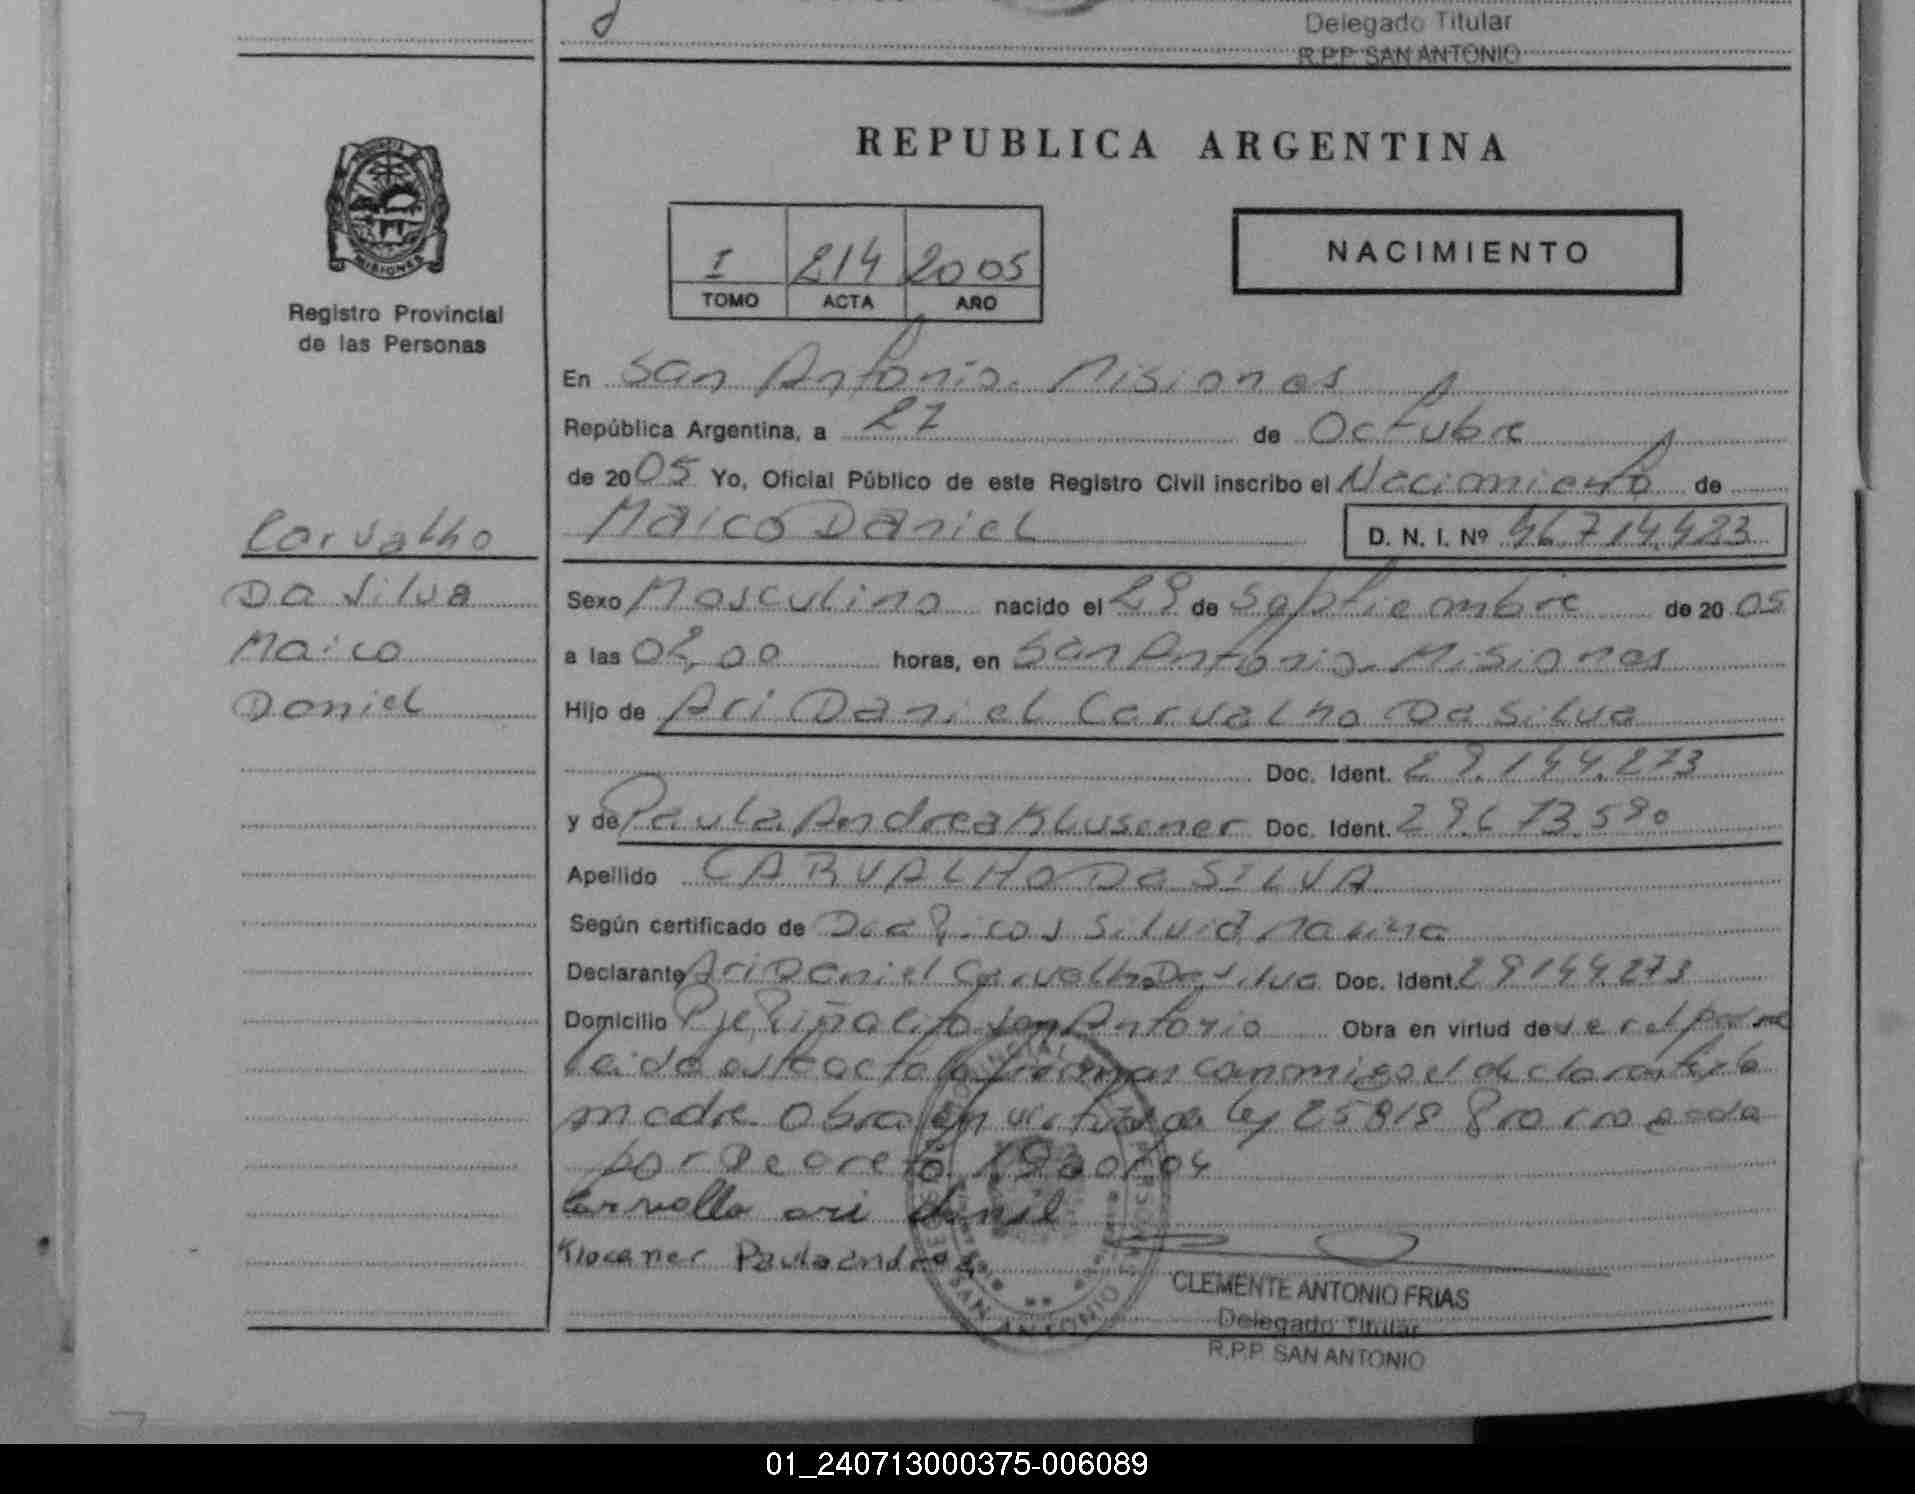 Delegado Titular
R.P.P. SAN ANTONIO
REPUBLICA ARGENTINA
PROVINCIA
MISIONES
Registro Provincial
de las Personas
I 214 2005
TOMO ACTA AÑO
NACIMIENTO
En San Antonio. Misiones
República Argentina, a 27 de Octubre
de 2005 Yo, Oficial Público de este Registro Civil inscribo el Nacimiento de
Maico Daniel D. N. I. Nº 46.714.423
Carvalho
Da Silva
Maico
Daniel
Sexo Masculino nacido el 29 de Septiembre de 2005
a las 02,00 horas, en San Antonio. Misiones
Hijo de Ari Daniel Carvalho Da Silva
Doc. Ident. 29.144.273
y de Paula Andrea Klusener Doc. Ident. 29.673.590
Apellido CARVALHO Da SILVA
Según certificado de Dra Ricos Silvia Marina
Declarante Ari Daniel Carvalho Da Silva Doc. Ident. 29144.273
Domicilio Pje Piñalito San Antonio Obra en virtud de ser el padre
leida este acta la firman conmigo el declarante y la
madre Obra en virtud de ley 25819 Prorrogada
por Decreto
Carvallo ari danil
Klocener Paula andrea
SAN ANTONIO
CLEMENTE ANTONIO FRIAS
Delegado Titular
R.P.P. SAN ANTONIO
01_240713000375-006089